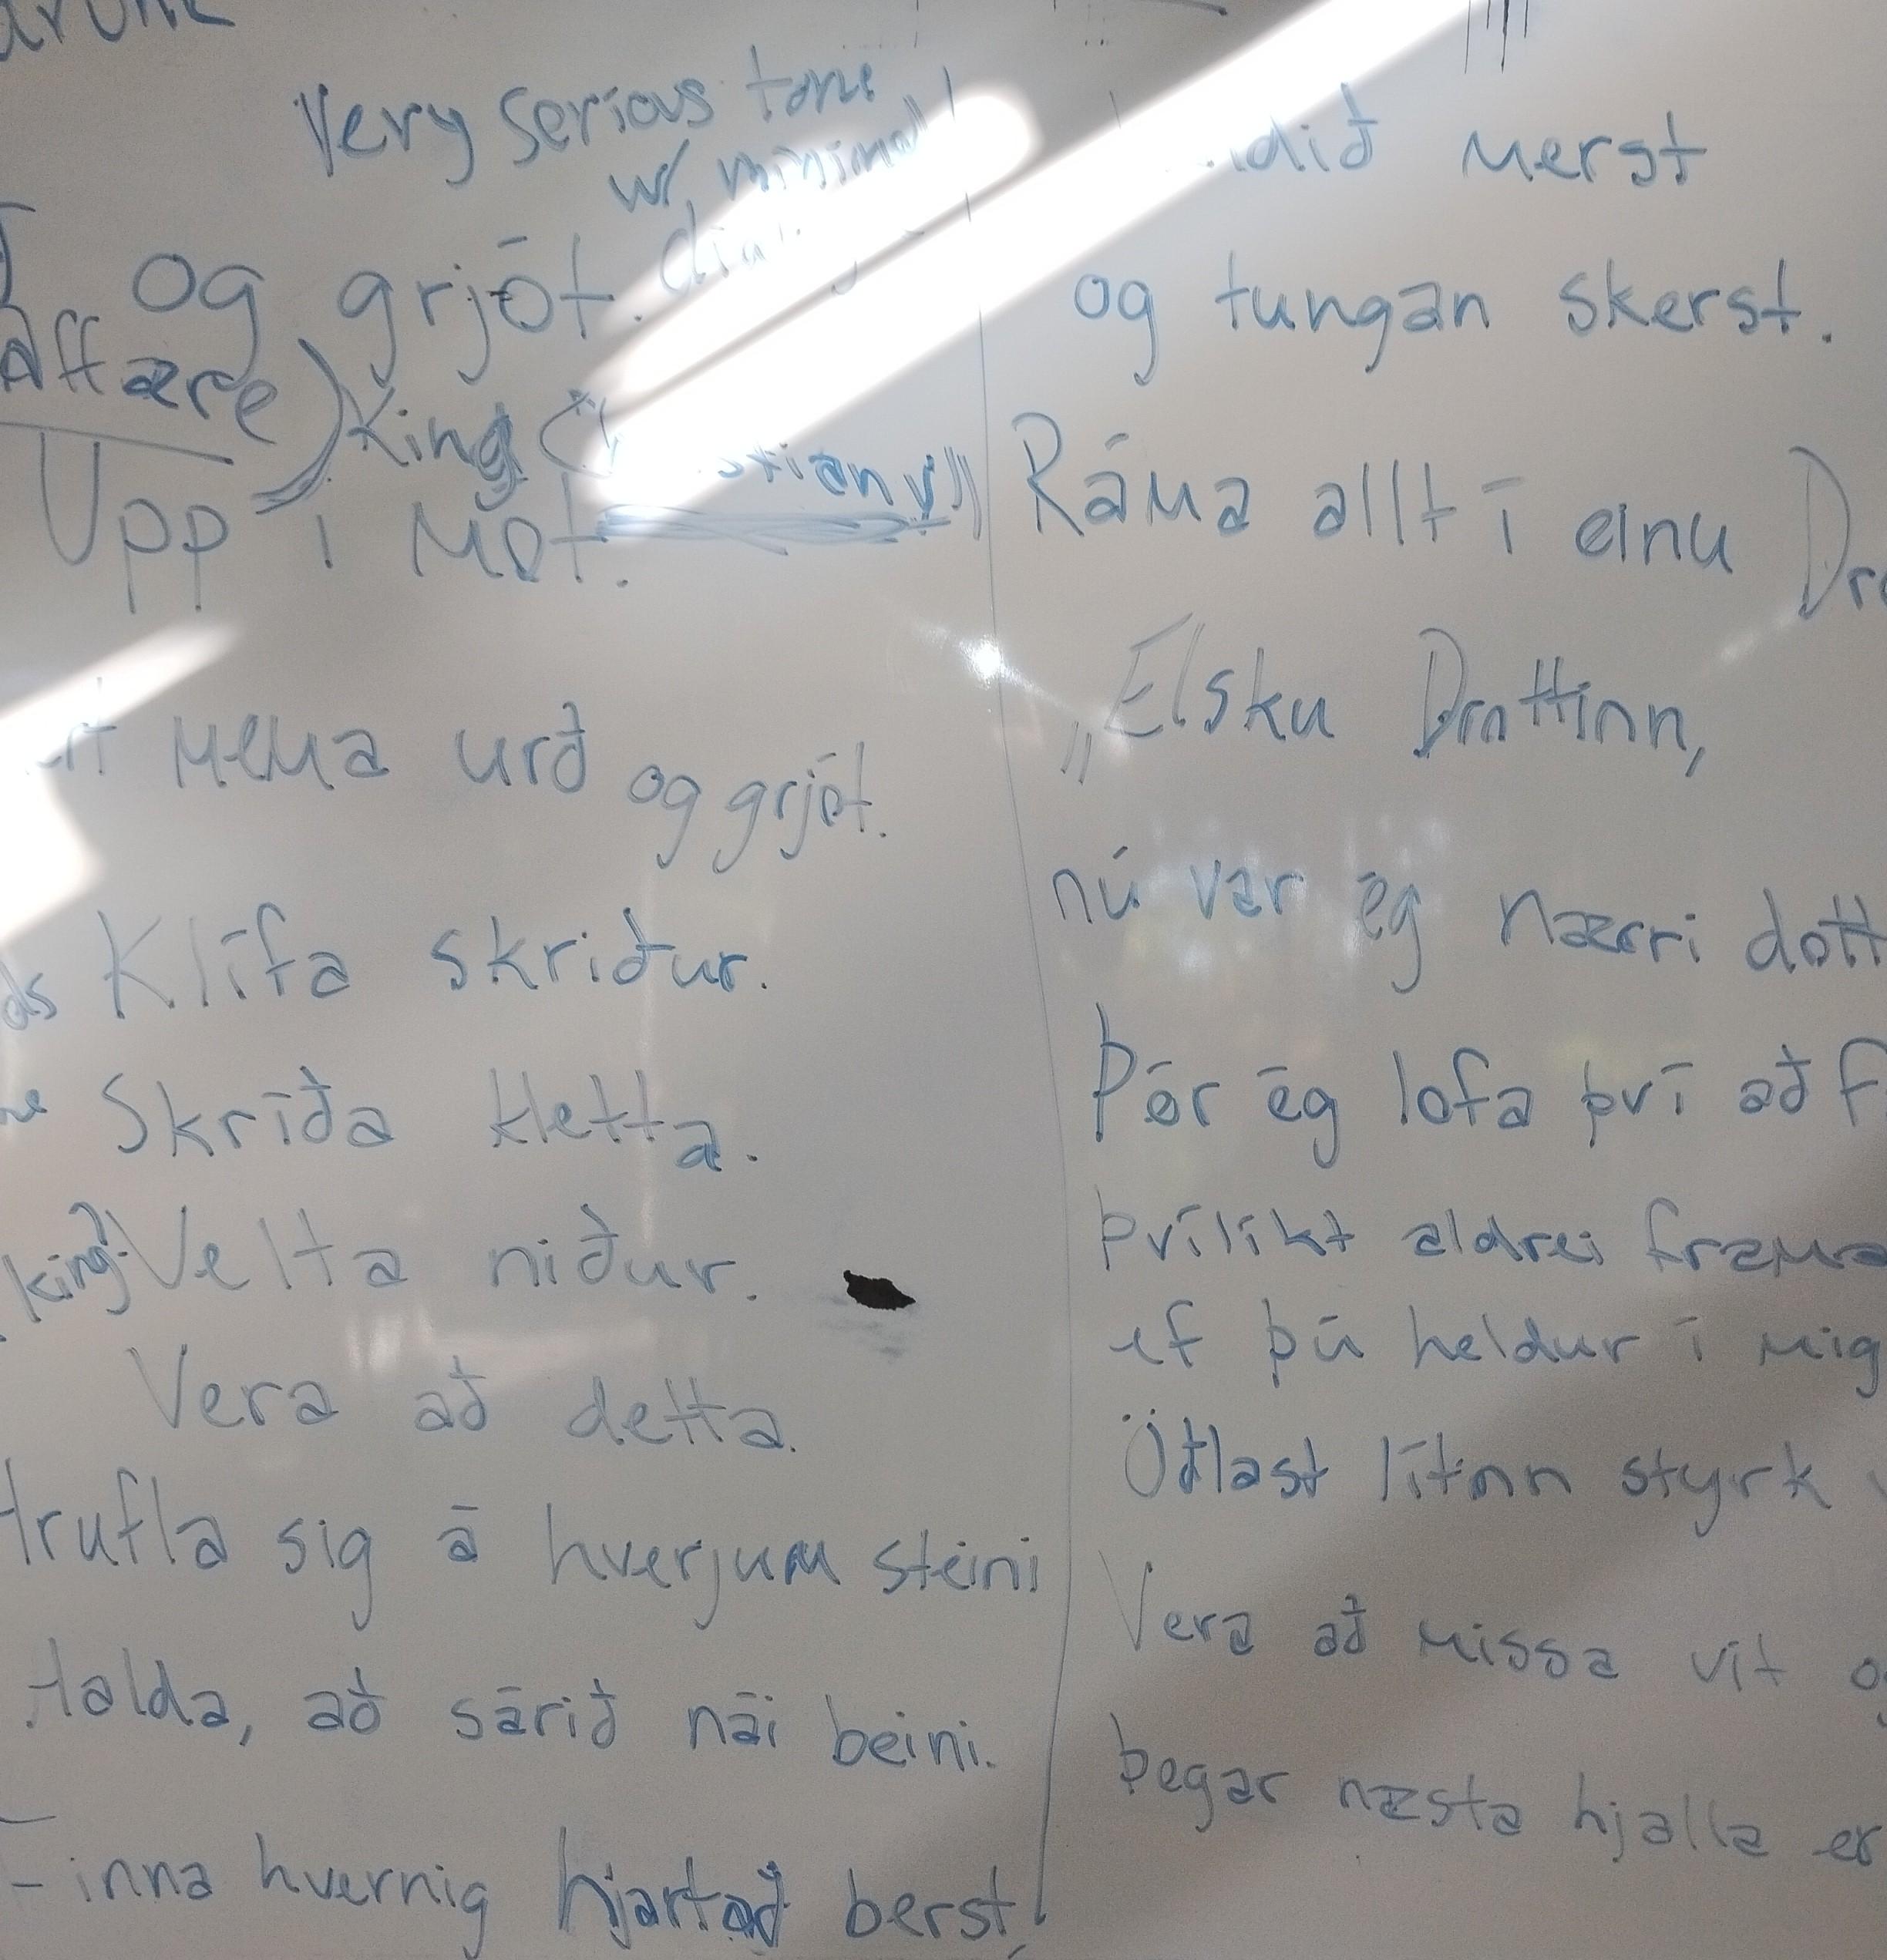 Very serious tone
w/ minimal
og grjót.
affære)
King
Upp í mót.
nema urð og grjót.
Klífa skriður.
Skríða kletta.
king? Velta niður.
Vera að detta.
Hrufla sig á hverjum steini
Halda, að sárið nái beini.
Finna hvernig hjartað berst,
merst
og tungan skerst.
Ráma allt í einu
„Elsku Drottinn,
nú var ég nærri
Þér ég lofa því að
þvílíkt aldrei
ef þú heldur í mig
Öðlast lítinn styrk
Vera að missa vit
þegar næsta hjalla er